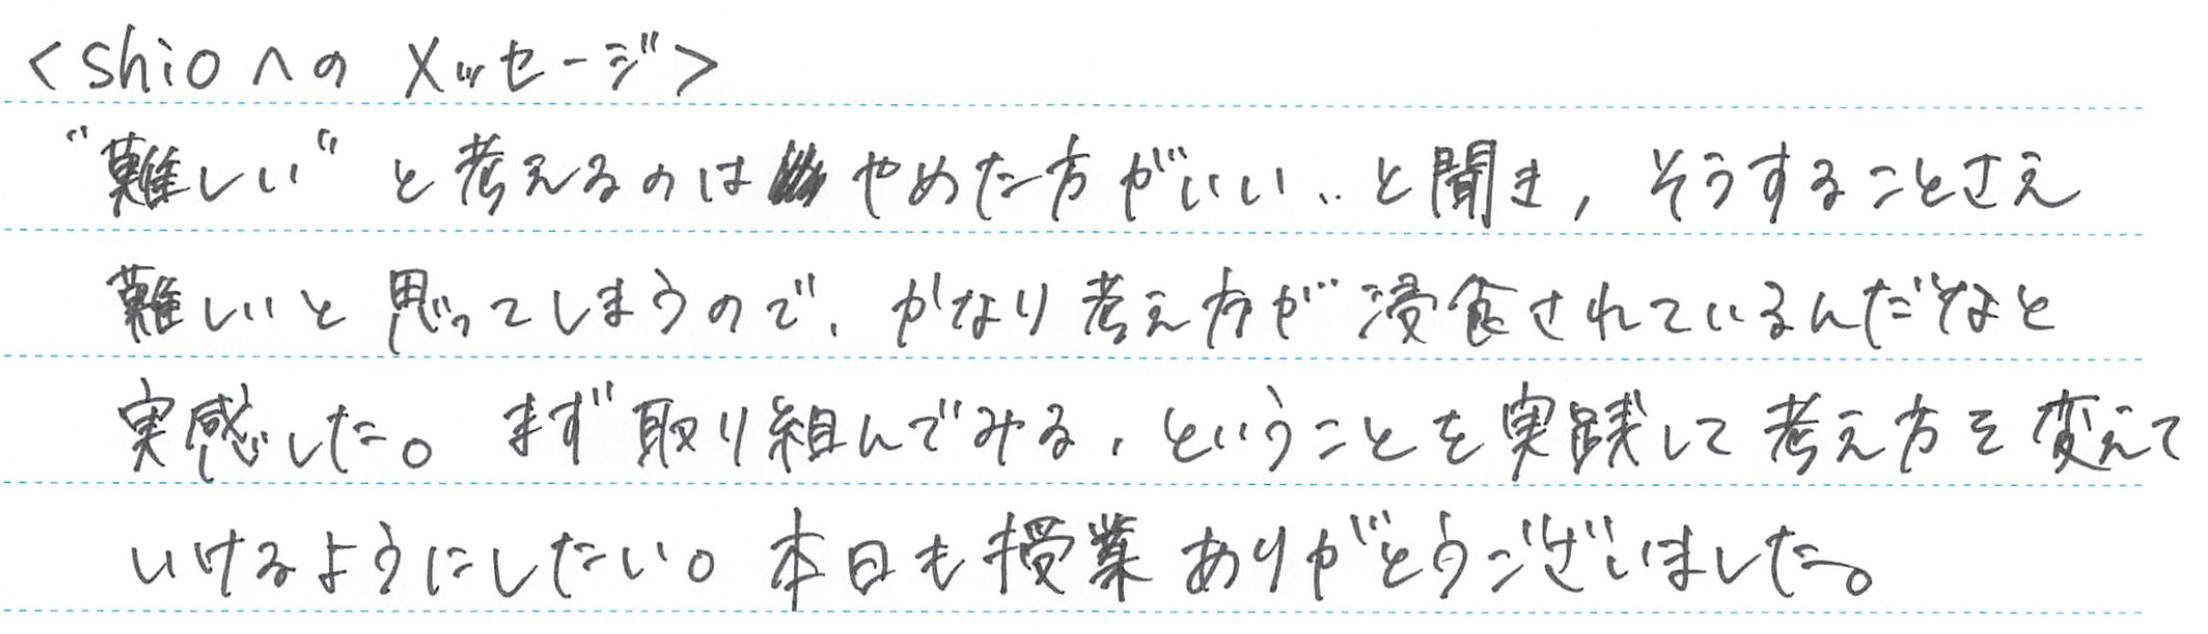 <shioへの メッセージ>
"難しい" と考えるのは やめた方がいい‥と聞き, そうすることさえ
難しいと思ってしまうので、かなり考え方が浸食されているんだなと
実感した。まず取り組んでみる、ということを実践して考え方を変えて
いけるようにしたい。本日も授業ありがとうございました。